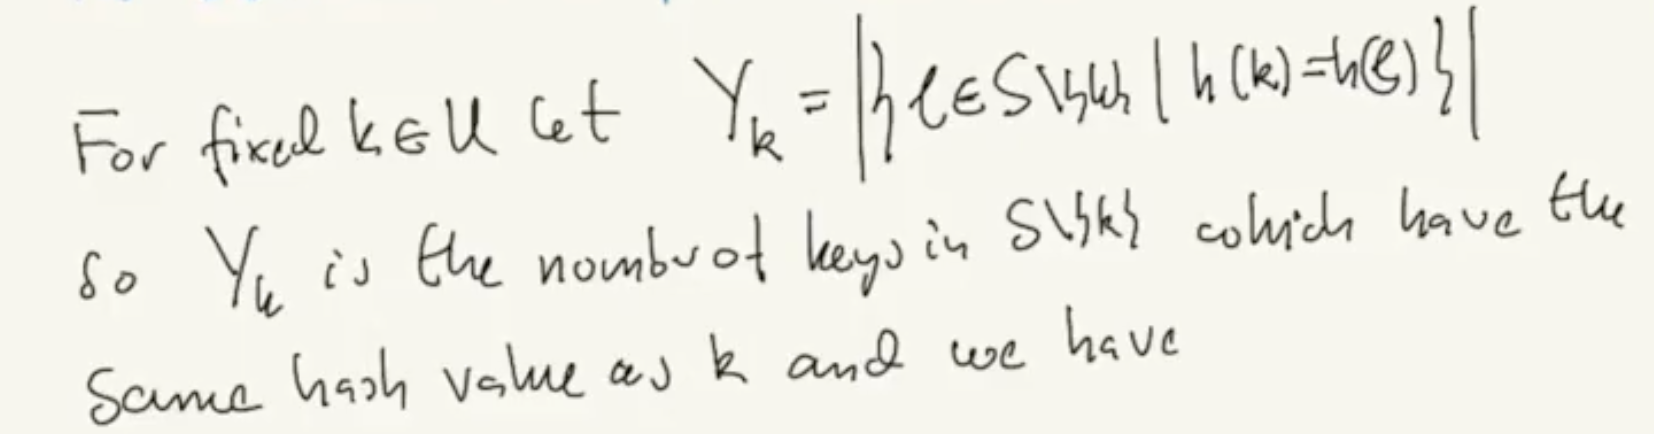 For fixed k∈U let Y_k = |{ℓ∈S\{k} | h(k)=h(ℓ)}|
so Y_k is the number of keys in S\{k} which have the
same hash value as k and we have